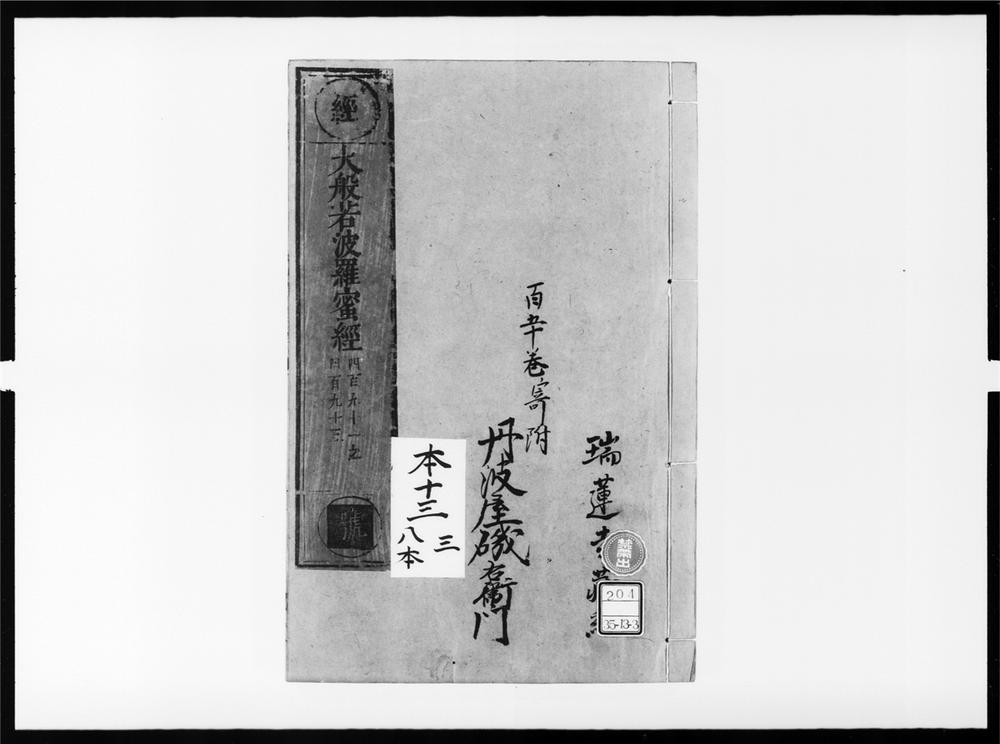 瑞蓮寺蔵経
百五十巻寄附
丹波屋磯右衛門
經
大般若波羅蜜經
四百九十一之
四百九十三
號
本十三
三
八本
禁帯出
204
35-13-3